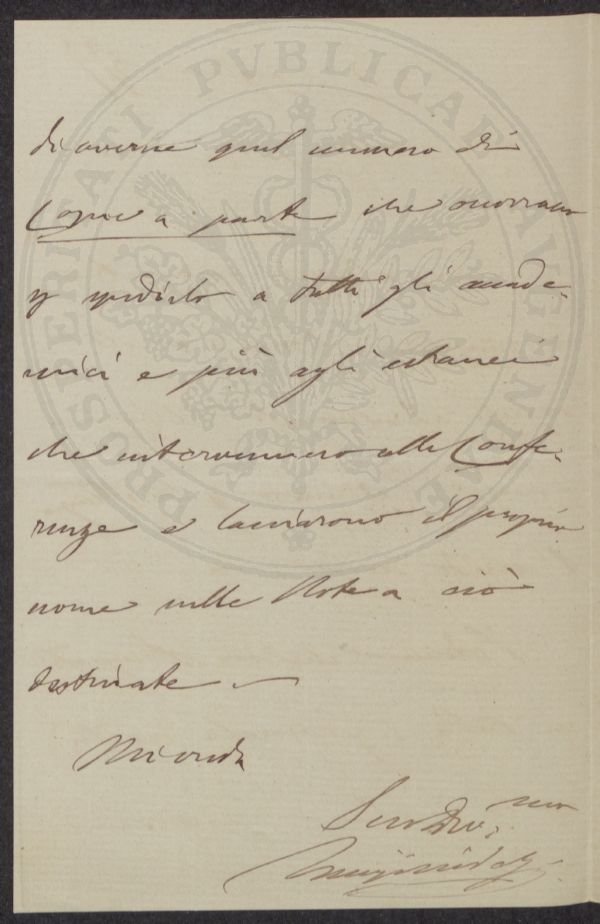 PROSPERITATI PVBLICAE AVGENDAE
di averne quel numero di
Copie a parte che occorrano
p spedirlo a tutti gli accade-
mici e più agli estranei
che intervennero alle Confe-
renze e lasciarono il proprio
nome nelle Note a ciò
destinate —
Mi creda
Suo Dev.mo